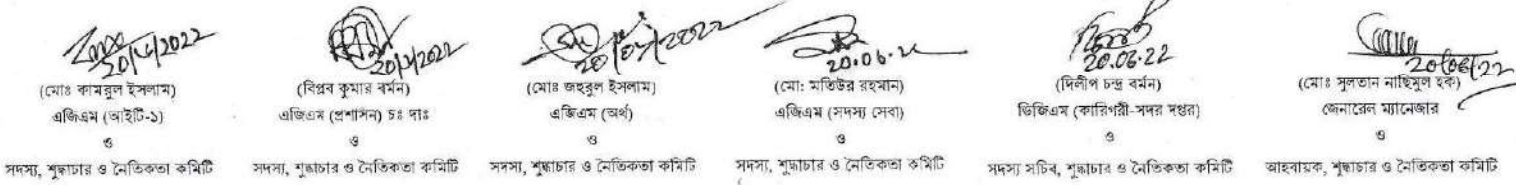 20/6/2022
(মোঃ কামরুল ইসলাম)
এজিএম (আইটি-১)
ও
সদস্য, শুদ্ধাচার ও নৈতিকতা কমিটি
20/6/2022
(বিপ্লব কুমার বর্মন)
এজিএম (প্রশাসন) চঃ দাঃ
ও
সদস্য, শুদ্ধাচার ও নৈতিকতা কমিটি
(মোঃ জহুরুল ইসলাম)
এজিএম (অর্থ)
ও
সদস্য, শুদ্ধাচার ও নৈতিকতা কমিটি
20.06.22
(মো: মতিউর রহমান)
এজিএম (সদস্য সেবা)
ও
সদস্য, শুদ্ধাচার ও নৈতিকতা কমিটি
20.06.22
(দিলীপ চন্দ্র বর্মন)
ডিজিএম (কারিগরী-সদর দপ্তর)
ও
সদস্য সচিব, শুদ্ধাচার ও নৈতিকতা কমিটি
20/06/22
(মোঃ সুলতান নাছিমুল হক)
জেনারেল ম্যানেজার
ও
আহবায়ক, শুদ্ধাচার ও নৈতিকতা কমিটি